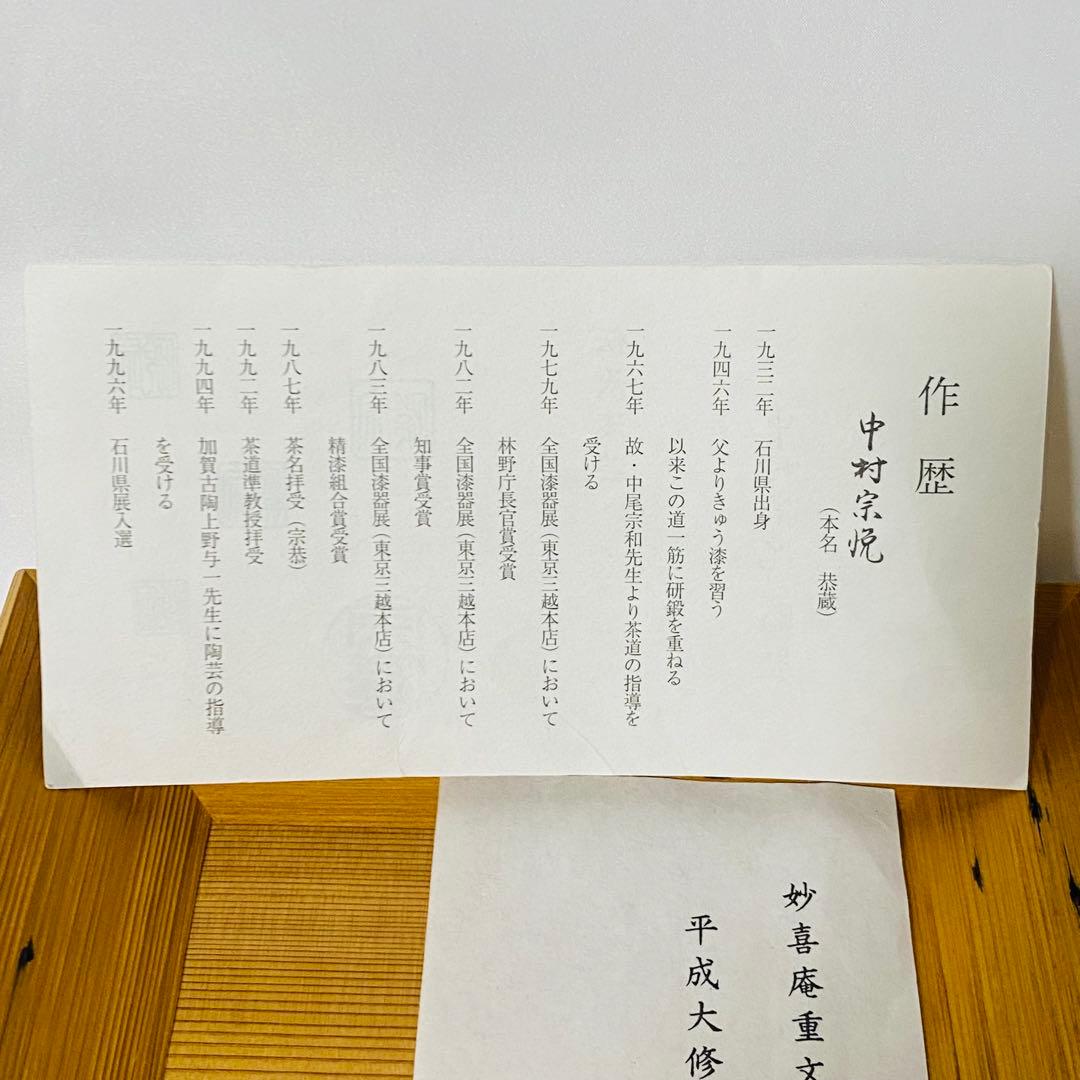 作歴
中村宗悦
（本名　恭蔵）
一九三二年　石川県出身
一九四六年　父よりきゅう漆を習う
以来この道一筋に研鍛を重ねる
一九六七年　故・中尾宗和先生より茶道の指導を
受ける
一九七九年　全国漆器展（東京三越本店）において
林野庁長官賞受賞
一九八二年　全国漆器展（東京三越本店）において
知事賞受賞
一九八三年　全国漆器展（東京三越本店）において
精漆組合賞受賞
一九八七年　茶名拝受（宗恭）
一九九二年　茶道準教授拝受
一九九四年　加賀古陶上野与一先生に陶芸の指導
を受ける
一九九六年　石川県展入選
妙喜庵重文
平成大修